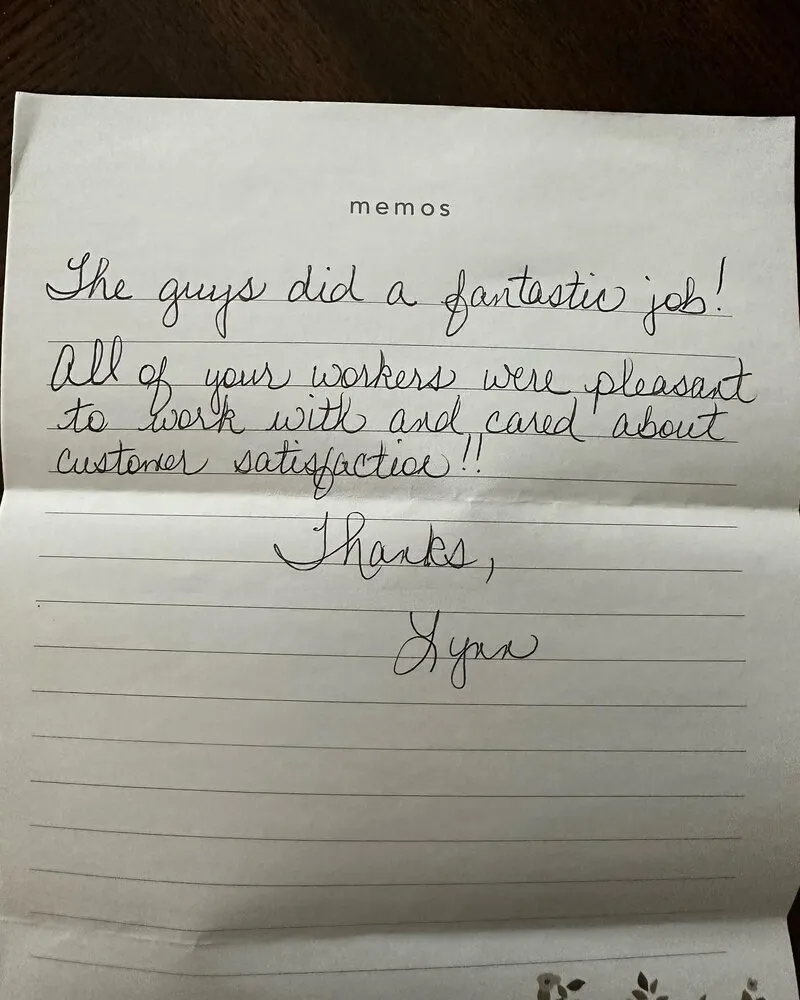 memos
The guys did a fantastic job!
All of your workers were pleasant
to work with and cared about
customer satisfaction!!
Thanks,
Lynn